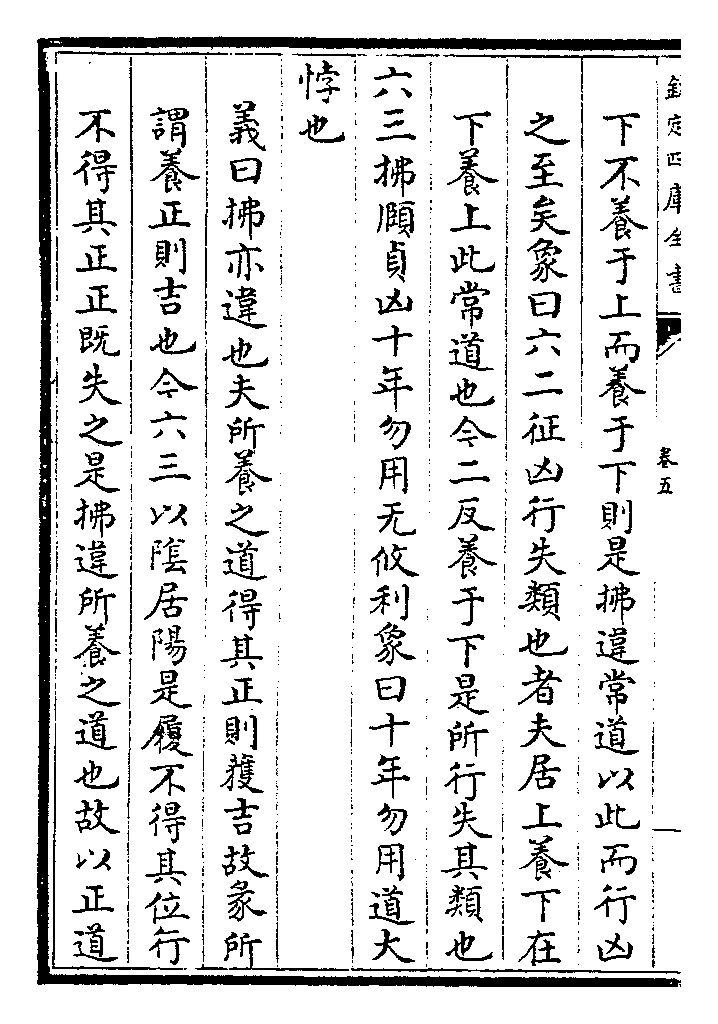 欽定四庫全書
卷五
下不養于上而養于下則是拂違常道以此而行凶
之至矣象曰六二征凶行失類也者夫居上養下在
下養上此常道也今二反養于下是所行失其類也
六三拂頤貞凶十年勿用无攸利象曰十年勿用道大
悖也
義曰拂亦違也夫所養之道得其正則獲吉故彖所
謂養正則吉也今六三以隂居陽是履不得其位行
不得其正正既失之是拂違所養之道也故以正道